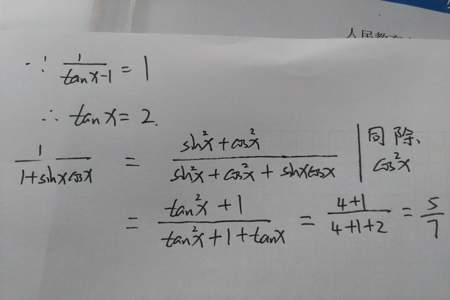 人民教
∵ 1/(tanx-1) = 1
∴ tanx = 2.
1/(1+sinxcosx) = (sin²x+cos²x)/(sin²x+cos²x+sinxcosx) | 同除、cos²x
= (tan²x+1)/(tan²x+1+tanx) = (4+1)/(4+1+2) = 5/7